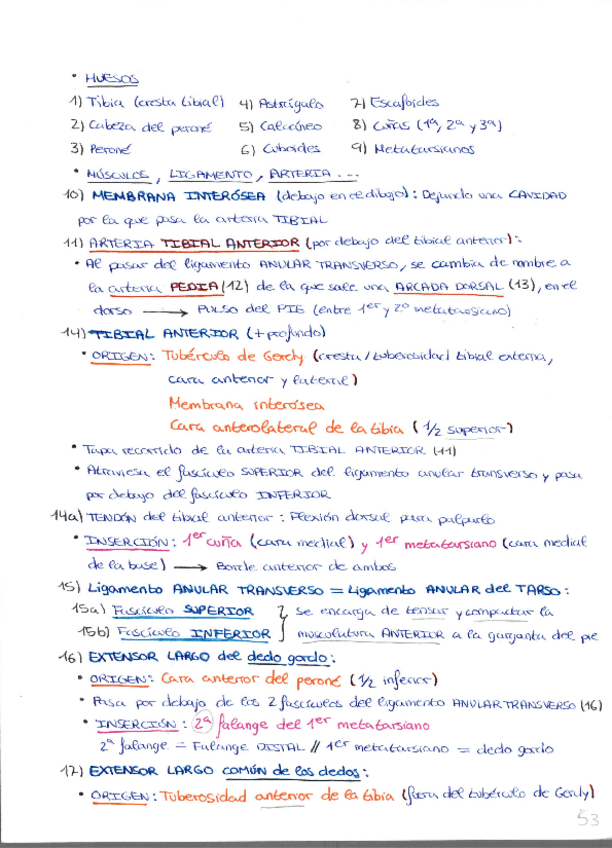 • HUESOS
1) Tibia (cresta tibial) 4) Astrágalo 7) Escafoides
2) Cabeza del peroné 5) Calcáneo 8) Cuñas (1ª, 2ª y 3ª)
3) Peroné 6) Cuboides 9) Metatarsianos
• MÚSCULOS, LIGAMENTO, ARTERIA ...
10) MEMBRANA INTERÓSEA (debajo en el dibujo): Dejando una CAVIDAD
por la que pasa la arteria TIBIAL
11) ARTERIA TIBIAL ANTERIOR (por debajo del tibial anterior):
• Al pasar del ligamento ANULAR TRANSVERSO, se cambia de nombre a
la arteria PEDIA (12) de la que sale una ARCADA DORSAL (13), en el
dorso → PULSO del PIE (entre 1er y 2º metatarsiano)
14) TIBIAL ANTERIOR (+ profundo)
• ORIGEN: Tubérculo de Gerdy (cresta / tuberosidad tibial externa,
cara anterior y lateral)
Membrana interósea
Cara anterolateral de la tibia (1/2 superior)
• Tapa recorrido de la arteria TIBIAL ANTERIOR (11)
• Atraviesa el fascículo SUPERIOR del ligamento anular transverso y pasa
por debajo del fascículo INFERIOR
14a) TENDÓN del tibial anterior: Flexión dorsal para palparlo
• INSERCIÓN: 1er cuña (cara medial) y 1er metatarsiano (cara medial
de la base) → Borde anterior de ambos
15) Ligamento ANULAR TRANSVERSO = Ligamento ANULAR del TARSO:
15a) Fascículo SUPERIOR } se encarga de tensar y compactar la
15b) Fascículo INFERIOR } musculatura ANTERIOR a la garganta del pie
16) EXTENSOR LARGO del dedo gordo:
• ORIGEN: Cara anterior del peroné (1/2 inferior)
• Pasa por debajo de los 2 fascículos del ligamento ANULAR TRANSVERSO (16)
• INSERCIÓN: 2ª falange del 1er metatarsiano
2ª falange = Falange DISTAL // 1er metatarsiano = dedo gordo
17) EXTENSOR LARGO COMÚN de los dedos:
• ORIGEN: Tuberosidad anterior de la tibia (fuera del tubérculo de Gerdy)
53